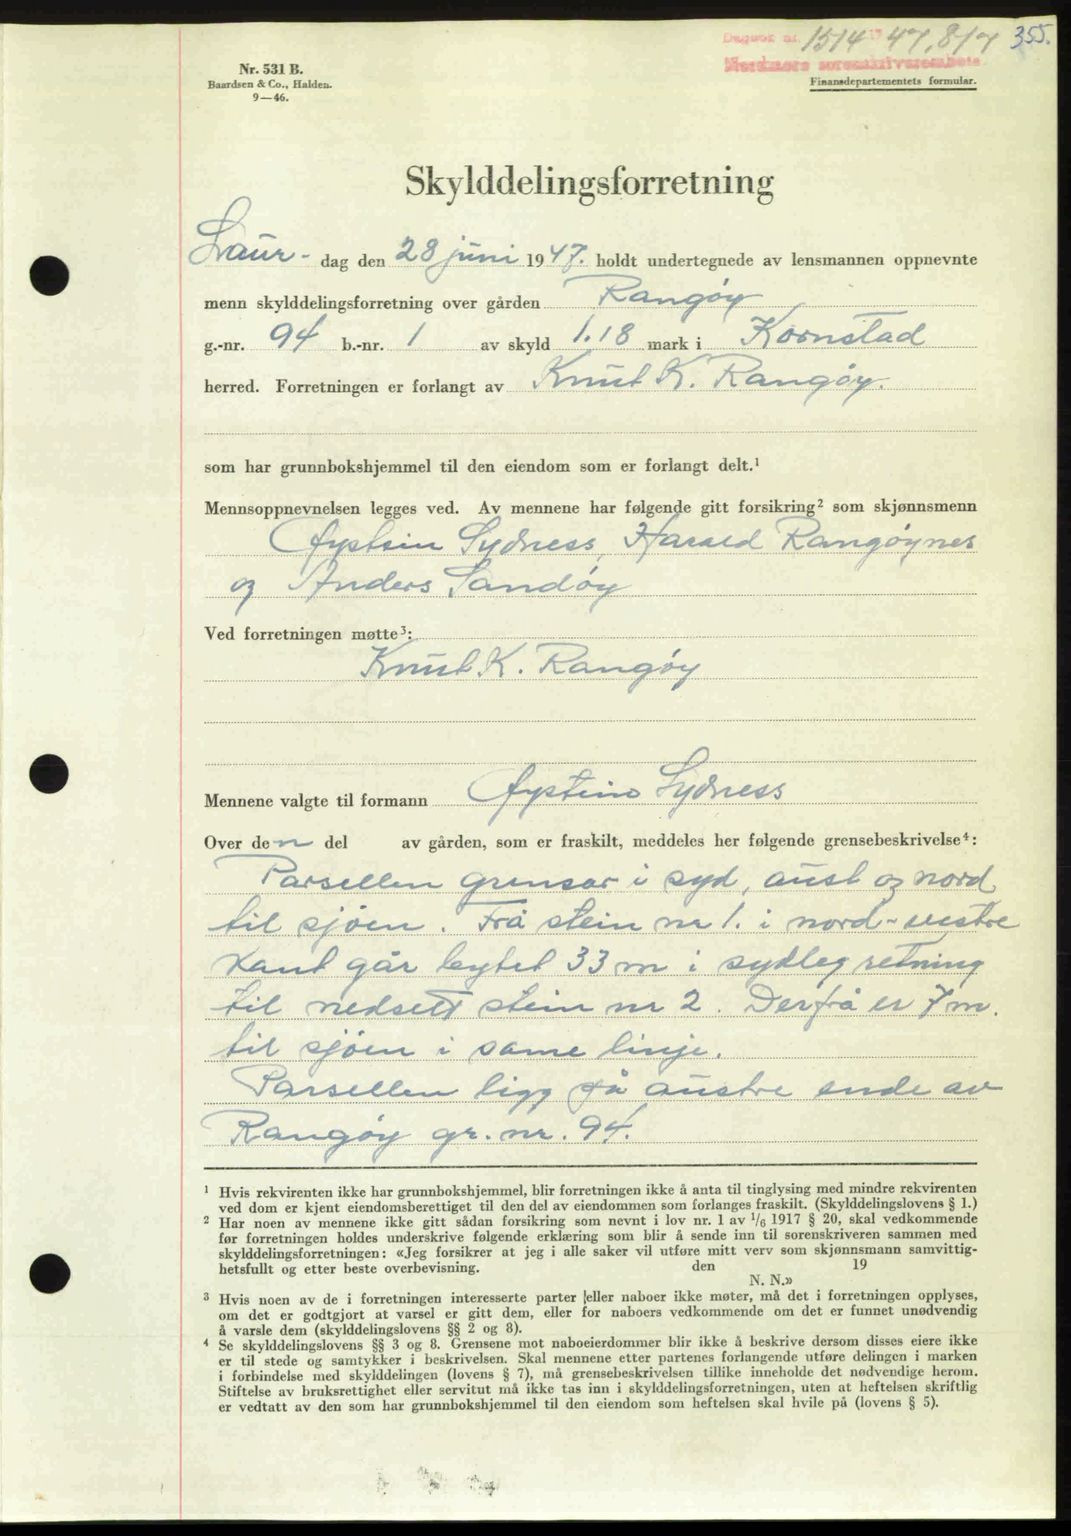 Dagbok nr. 1514 19 47, 8/7 355.
Nordmøre sorenskriverembete
Nr. 531 B.
Baardsen & Co., Halden.
9—46.
Finansdepartementets formular.
Skylddelingsforretning
Laur- dag den 28 juni 1947. holdt undertegnede av lensmannen oppnevnte
menn skylddelingsforretning over gården Rangøy
g.-nr. 94 b.-nr. 1 av skyld 1.18 mark i Kornstad
herred. Forretningen er forlangt av Knut K. Rangøy.
som har grunnbokshjemmel til den eiendom som er forlangt delt.¹
Mennsoppnevnelsen legges ved. Av mennene har følgende gitt forsikring² som skjønnsmenn
Øystein Sydness, Harald Rangøynes
og Anders Sandøy
Ved forretningen møtte³:
Knut K. Rangøy
Mennene valgte til formann Øystein Sydness
Over den del av gården, som er fraskilt, meddeles her følgende grensebeskrivelse⁴:
Parsellen grensar i syd, aust og nord
til sjøen. Frå stein nr 1. i nord-vestre
kant går bytet 33 m i sydleg retning
til nedsett stein nr 2. Derfrå er 7 m.
til sjøen i same linje.
Parsellen ligg på austre ende av
Rangøy gr. nr. 94.
¹ Hvis rekvirenten ikke har grunnbokshjemmel, blir forretningen ikke å anta til tinglysing med mindre rekvirenten
ved dom er kjent eiendomsberettiget til den del av eiendommen som forlanges fraskilt. (Skylddelingslovens § 1.)
² Har noen av mennene ikke gitt sådan forsikring som nevnt i lov nr. 1 av 1/6 1917 § 20, skal vedkommende
før forretningen holdes underskrive følgende erklæring som blir å sende inn til sorenskriveren sammen med
skylddelingsforretningen: «Jeg forsikrer at jeg i alle saker vil utføre mitt verv som skjønnsmann samvittig-
hetsfullt og etter beste overbevisning. den 19
N. N.»
³ Hvis noen av de i forretningen interesserte parter eller naboer ikke møter, må det i forretningen opplyses,
om det er godtgjort at varsel er gitt dem, eller for naboers vedkommende om det er funnet unødvendig
å varsle dem (skylddelingslovens §§ 2 og 8).
⁴ Se skylddelingslovens §§ 3 og 8. Grensene mot naboeierdommer blir ikke å beskrive dersom disses eiere ikke
er til stede og samtykker i beskrivelsen. Skal mennene etter partenes forlangende utføre delingen i marken
i forbindelse med skylddelingen (lovens § 7), må grensebeskrivelsen tillike inneholde det nødvendige herom.
Stiftelse av bruksrettighet eller servitut må ikke tas inn i skylddelingsforretningen, uten at heftelsen skriftlig
er vedtatt av den som har grunnbokshjemmel til den eiendom som heftelsen skal hvile på (lovens § 5).